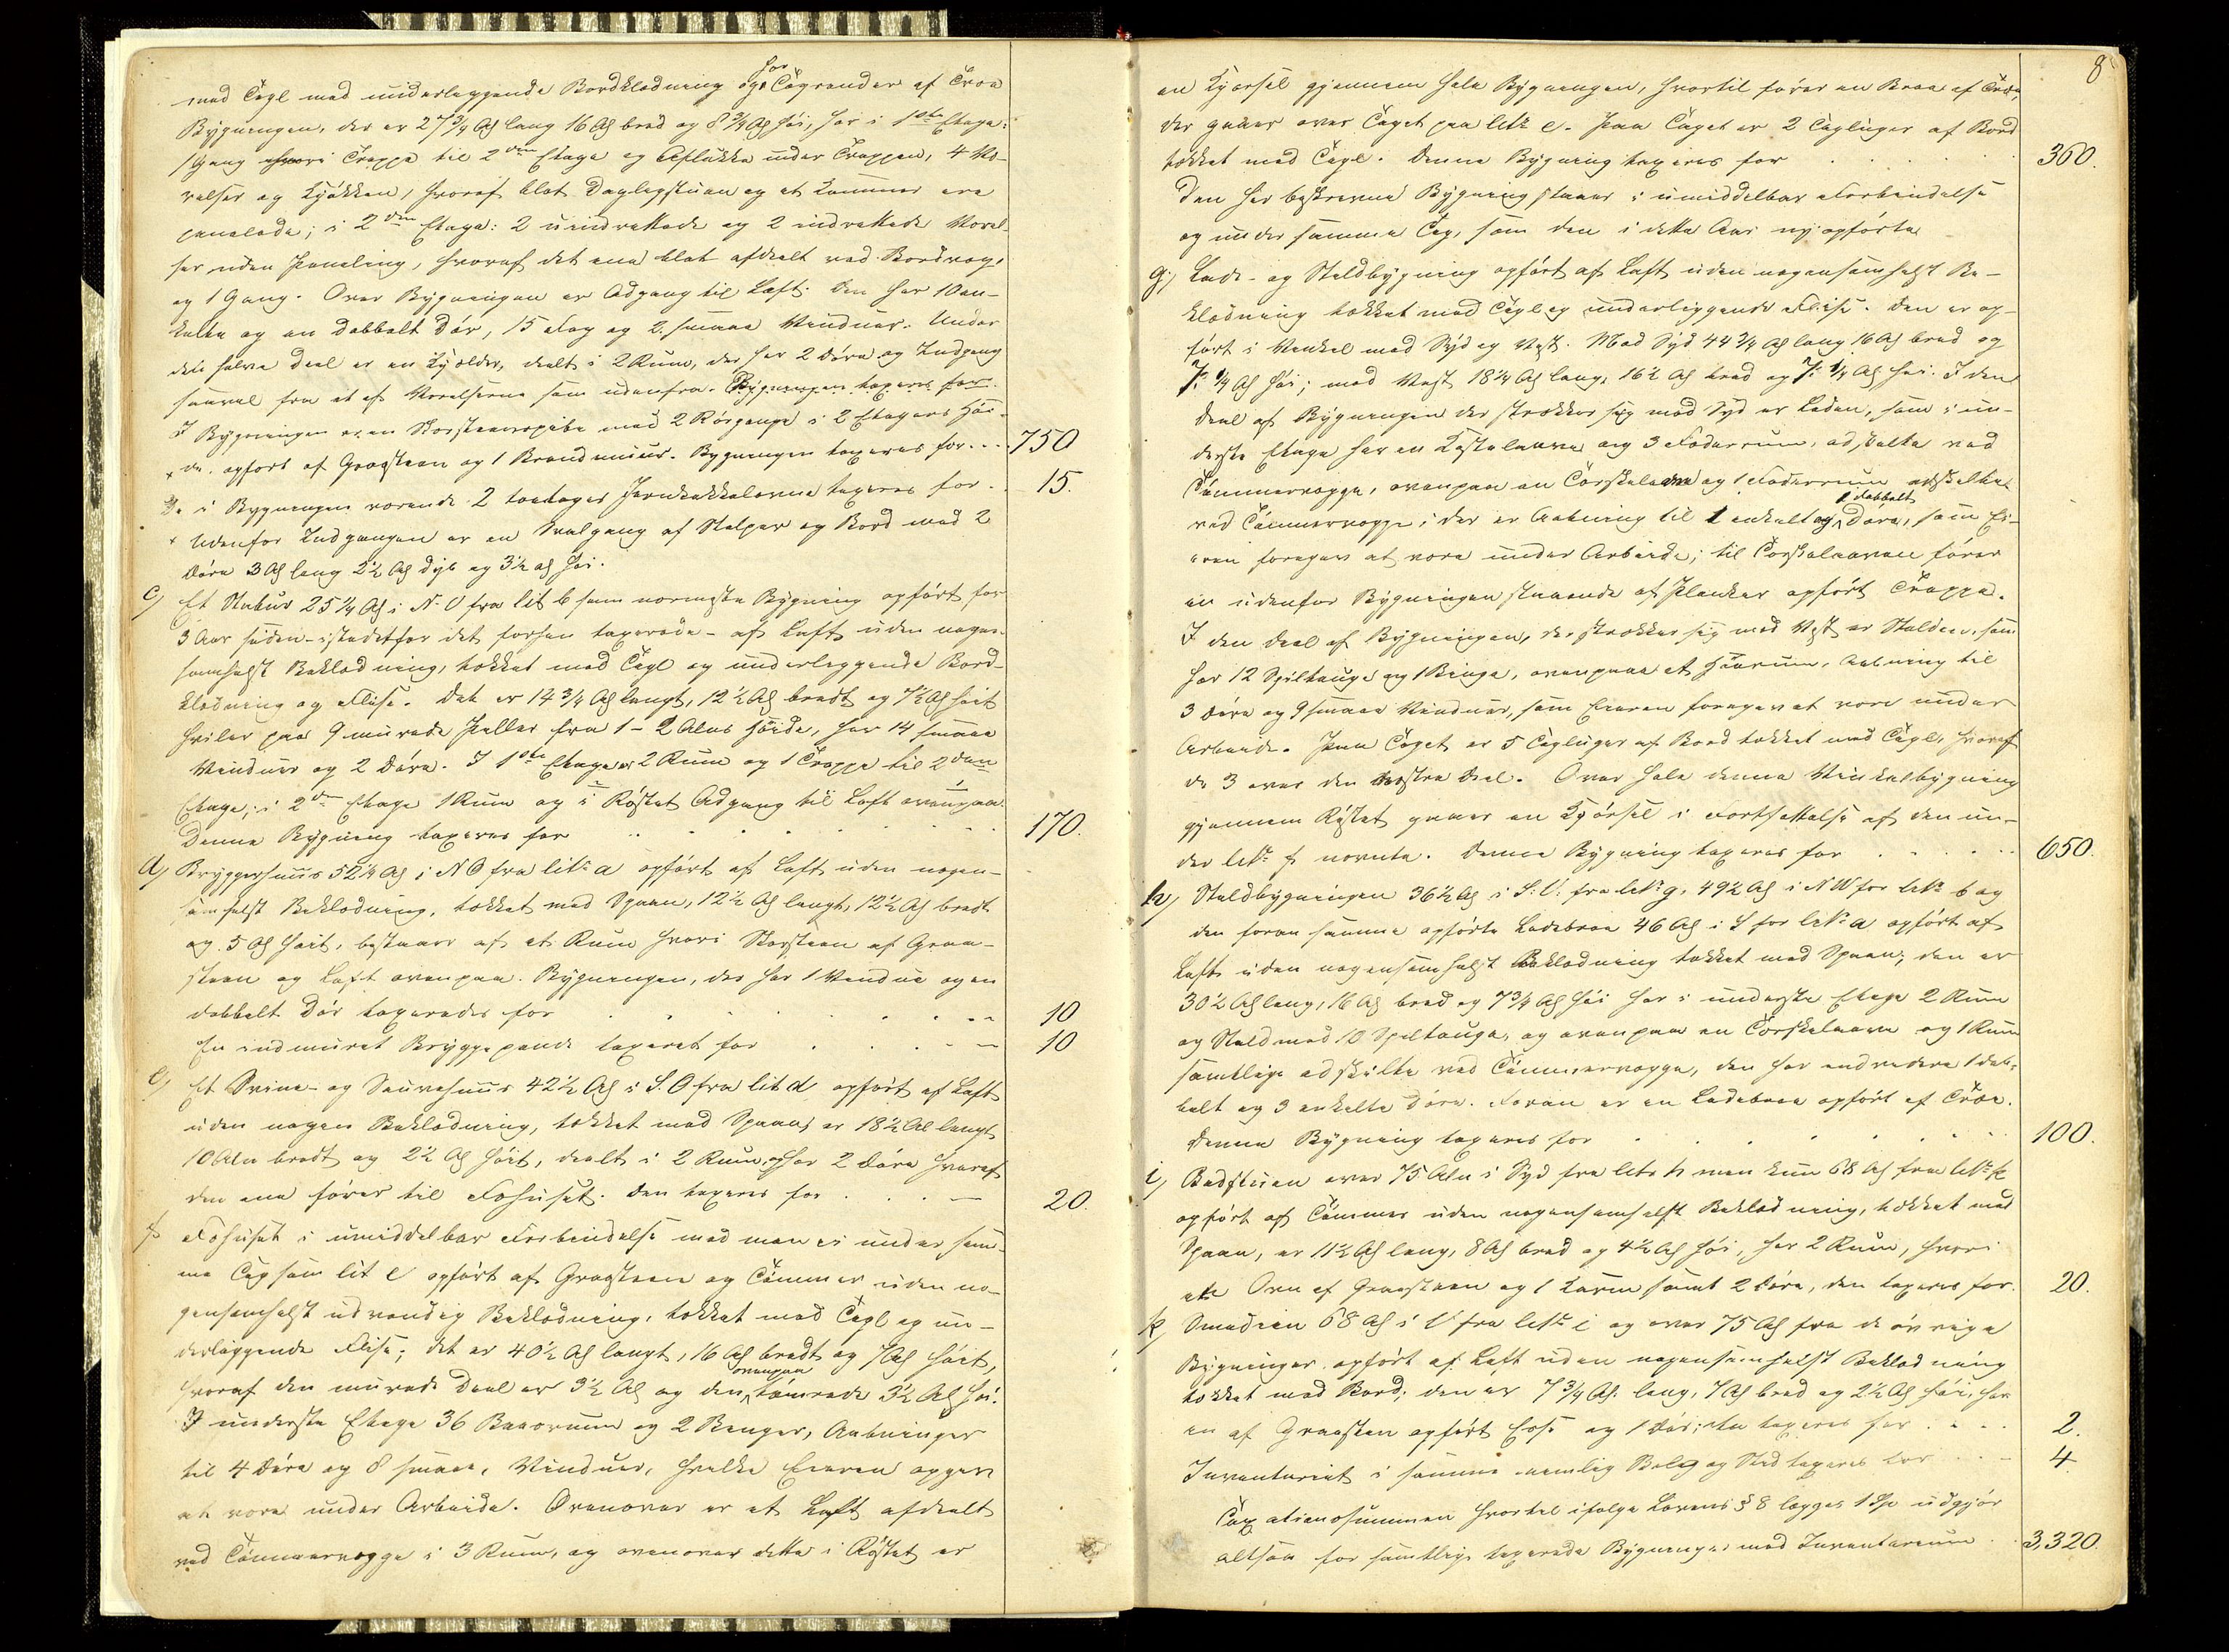 med Tegl med underleggende Bordklædning og har Tagrender af Træe
Bygningen, der er 27 3/4 Al lang 16 Al bred og 8 3/4 Al høi, har i 1ste Etage:
1 Gang hvori Trappe til 2den Etage og Aflukke under Trappen, 4 Væ-
relser og Kjøkken, hvoraf blot Dagligstuen og et Kammer ere
panelede; i 2den Etage: 2 uindrettede og 2 indrettede Værel-
ser uden Paneling, hvoraf det ene blot afdeelt ved Bordvæg,
og 1 Gang. Over Bygningen er Adgang til Loft. Den har 10 en-
kelte og en dobbelt Dør, 15 Fag og 2 smaae Vinduer. Under
den halve Deel er en Kjælder, deelt i 2 Rum, der har 2 Døre og Indgang
saavel fra et af Værelserne som udenfra. Bygningen taxeres for
I Bygningen er en Skorsteenspibe med 2 Rørgange i 2 Etagers Høi-
de, opført af Graasteen og 1 Brandmuur. Bygningen taxeres for... 750
De i Bygningen værende 2 toetages Jernkakkelovne taxeres for. 15.
Udenfor Indgangen er en Svalgang af Stolper og Bord med 2
Døre 3 Al lang 2 1/2 Al dyb og 3 1/2 Al høi.
c) Et Stabur 25 1/4 Al i N. O fra lit b som nærmeste Bygning opført for
3 Aar siden - istedetfor det forhen taxerede - af Laft uden nogen-
somhelst Beklædning, tækket med Tegl og underliggende Bord-
klædning og Flise. Det er 14 3/4 Al langt, 12 1/2 Al bredt og 7 1/2 Al høit
hviler paa 9 murede Piller fra 1 - 2 Alens Høide, har 14 smaae
Vinduer og 2 Døre. I 1ste Etage er 2 Rum og 1 Trappe til 2den
Etage; i 2den Etage 1 Rum og i Røstet Adgang til Loft ovenpaa.
Denne Bygning taxeres for 170.
d) Bryggerhuus 52 1/4 Al i N O fra litr a opført af Laft uden nogen-
somhelst Beklædning, tækket med Spaan, 12 1/2 Al langt, 12 1/2 Al bredt
og 5 Al høit, bestaaer af et Rum hvori Skorsteen af Graa-
steen og Loft ovenpaa. Bygningen, der har 1 Vindue og en
dobbelt Dør taxeredes for 10
En indmuret Bryggepande taxeret for 10
e) Et Svine- og Sauehuus 42 1/2 Al i S. O fra lit d opført af Laft
uden nogen Beklædning, tækket med Spaan, er 18 1/2 Al langt
10 Alen bredt og 2 1/2 Al høit, deelt i 2 Rum, og har 2 Døre hvoraf
den ene fører til Fæhuset. Den taxeres for 20.
f) Fæhuset i umiddelbar Forbindelse med men ei under sam-
me Tag som lit e opført af Graasteen og Tømmer uden no-
gensomhelst udvendig Beklædning, tækket med Tegl og un-
derliggende Flise; det er 40 1/2 Al langt, 16 Al bredt og 7 Al høit,
hvoraf den murede Deel er 3 1/2 Al og den ovenpaa tømrede 3 1/2 Al høi.
I underste Etage 36 Baaserum og 2 Benger, Aabninger
til 4 Døre og 8 smaae Vinduer, hvilke Eieren opgav
at være under Arbeide. Ovenover er et Loft afdeelt
ved Tømmervægge i 3 Rum, og ovenover dette i Røstet er
8
en Kjørsel gjennem hele Bygningen, hvortil fører en Broe af Træe,
der gaaer over Taget paa litr e. Paa Taget er 2 Tagluger af Bord
tækket med Tegl. Denne Bygning taxeres for 360.
Den her beskrevne Bygning staaer i umiddelbar Forbindelse
og under samme Tag, som den i dette Aar ny opførte
g.) Lade- og Staldbygning opført af Laft uden nogensomhelst Be-
klædning tækket med Tegl og underliggende Flise. Den er op-
ført i Vinkel mod Syd og Vest. Mod Syd 44 3/4 Al lang 16 Al bred og
7 1/4 Al høi; mod Vest 18 1/4 Al lang, 16 1/2 Al bred og 7 1/4 Al høi. I den
Deel af Bygningen der strækker sig mod Syd er Laden, som i un-
derste Etage har en og 3 Foderrum, adskilte ved
Tømmervægge, ovenpaa en Tørskelaave og 1 Foderrum adskilte
ved Tømmervægge; der er Aabning til 1 enkelt og 1 dobbelt Døre, som Ei-
eren foregav at være under Arbeide; til Tørskelaaven fører
en udenfor Bygningen staaende af Planker opført Trappe.
I den Deel af Bygningen, der strækker sig mod Vest er Stalden, som
har 12 Spiltauge og 1 Binge, ovenpaa et Høerum, Aabning til
3 Døre og 9 smaae Vinduer, som Eieren foregav at være under
Arbeide. Paa Taget er 5 Tagluger af Bord tækket med Tegl, hvoraf
de 3 over den vestre Deel. Over hele denne Vinkelbygning
gjennem Røstet gaaer en Kjørsel i Fortsættelse af den un-
der litr f nævnte. Denne Bygning taxeres for 650.
h) Staldbygningen 36 1/2 Al i S. V. fra litr g, 49 1/2 Al i N W for litr b og
den foran samme opførte Ladebroe 46 Al i S for litr a opført af
Laft uden nogensomhelst Beklædning tækket med Spaan; den er
30 1/2 Al lang, 16 Al bred og 7 3/4 Al høi har i underste Etage 2 Rum
og Stald med 10 Spiltauge, og ovenpaa en Tørskelaave og 1 Rum
samtlige adskilte ved Tømmervægge, den har endvidere 1 dob-
belt og 3 enkelte Døre. Foran er en Ladebroe opført af Træe.
Denne Bygning taxeres for 100.
i) Badstuen over 75 Alen i Syd fra litr h men kun 68 Al fra litr k
opført af Tømmer uden nogensomhelst Beklædning, tækket med
Spaan, er 11 1/2 Al lang, 8 Al bred og 4 1/2 Al høi, har 2 Rum, hvori
en Ovn af Graasteen og 1 samt 2 Døre, den taxeres for. 20.
k) Smedien 68 Al i V fra litr i og over 75 Al fra de øvrige
Bygninger opført af Laft uden nogensomhelst Beklædning
tækket med Bord; den er 7 3/4 Al. lang, 7 Al bred og 2 1/2 Al høi, har
en af Graasteen opført Esse og 1 Dør; den taxeres for 2.
Inventariet i samme nemlig Belg og Sted taxeres for 4
Taxationssummen hvortil ifølge Lovens § 8 lægges 1 Sp udgjør
altsaa for samtlige taxerede Bygninger med Inventarium 3,320.